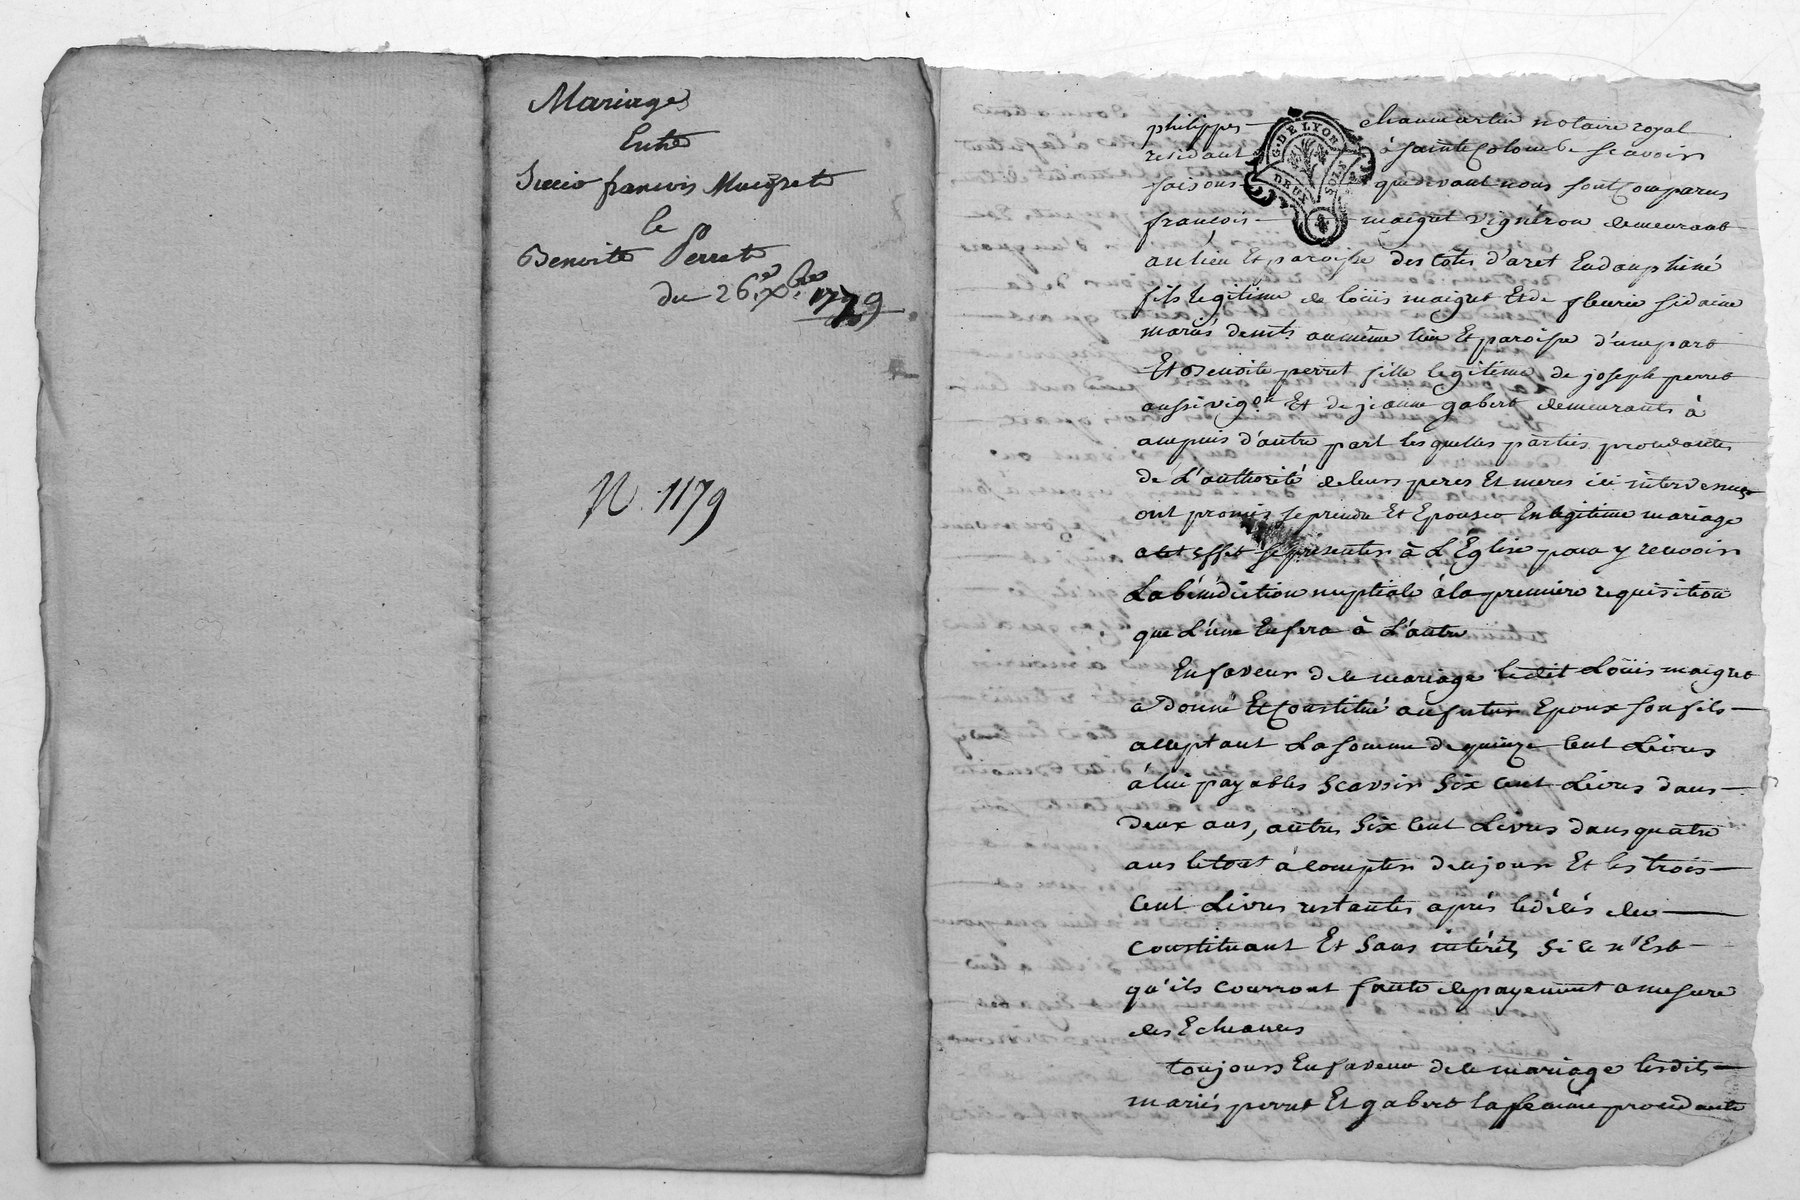 Mariage
Entre
Sieur françois Maigret
le
Benoite Perret
du 26.e Xbre 1779
N. 1179
G. DE LYON
DEUX SOLS
philippes chaumartin notaire royal
residant à Sainte Colombe Scavoir
faisons que devant nous sont Comparus
françois maigret vigneron demeurant
au lieu Et paroisse des Côtes d'aret En dauphiné
fils legitime de loüis maigret Et de fleurie fidaine
mariés demts. au même lieu Et paroisse d'une part
Et Benoite perret fille legitime de joseph perret
aussi vigon Et de jeanne gabert demeurants à
ampuis d'autre part lesquelles parties procedantes
de L'authorité de leurs peres Et meres ici intervenus
ont promis se prendre Et Epouser En legitime mariage
a cet effet se presenter à L'Eglise pour y recevoir
La bénédiction nuptiale à la premiere requisition
que L'une En fera à L'autre
En faveur de ce mariage ledit Loüis maigret
a donné Et Constitué au futur Epoux son fils
acceptant La somme de quinze Cent Livres
à lui payables Scavoir Six Cent Livres dans
deux ans, autres Six Cent Livres dans quatre
ans le tout à compter de ce jour Et les trois
Cent Livres restantes après le décés du
Constituant Et Sans intérêts Si ce n'Est
qu'ils courront faute de payement a mesure
des Echeances
toujours En faveur de ce mariage lesdits
mariés perret Et gabert la femme procedante